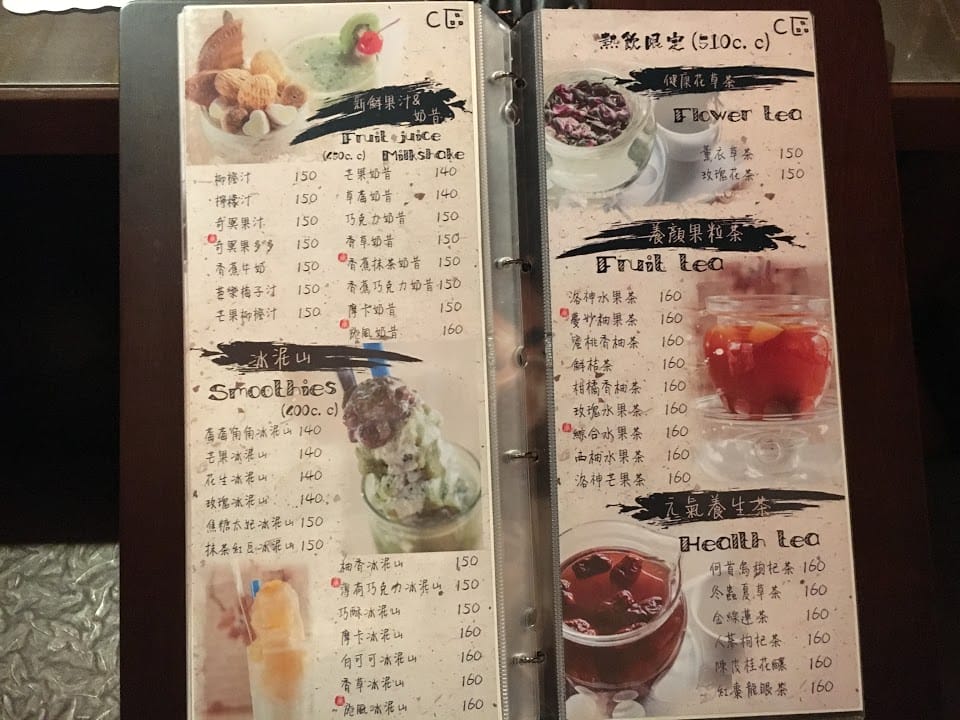 C區
新鮮果汁&
奶昔
Fruit juice
(450c. c) Milkshake
柳橙汁 150
檸檬汁 150
奇異果汁 150
奇異果多多 150
香蕉牛奶 150
芭樂梅子汁 150
芒果柳橙汁 150
芒果奶昔 140
草莓奶昔 140
巧克力奶昔 150
香草奶昔 150
香蕉抹茶奶昔 150
香蕉巧克力奶昔 150
摩卡奶昔 150
颱風奶昔 160
冰泥山
Smoothies
(400c. c)
莓莓角角冰泥山 140
芒果冰泥山 140
花生冰泥山 140
玫瑰冰泥山 140
焦糖太妃冰泥山 150
抹茶紅豆冰泥山 150
柚香冰泥山 150
薄荷巧克力冰泥山 150
巧酥冰泥山 150
摩卡冰泥山 160
白可可冰泥山 160
香草冰泥山 160
颱風冰泥山 160
C區
熱飲限定 (510c. c)
健康花草茶
Flower tea
薰衣草茶 150
玫瑰花茶 150
養顏果粒茶
Fruit tea
洛神水果茶 160
曼妙柚果茶 160
蜜桃香柚茶 160
鮮桔茶 160
柑橘香柚茶 160
玫瑰水果茶 160
綜合水果茶 160
西柚水果茶 160
洛神芒果茶 160
元氣養生茶
Health tea
何首烏枸杞茶 160
冬蟲夏草茶 160
金線蓮茶 160
人蔘枸杞茶 160
陳皮桂花釀 160
紅棗龍眼茶 160